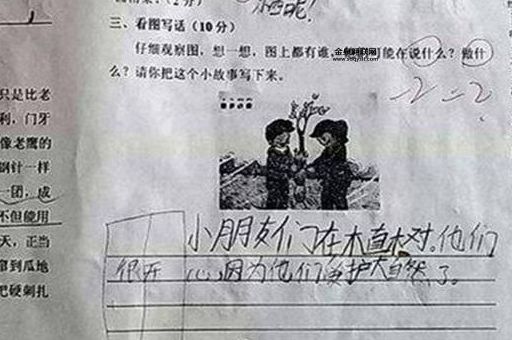 酒呢！
三、看图写话（10分）
仔细观察图，想一想，图上都有谁，可能在说什么？做什
么？请你把这个小故事写下来。
-2 = 2
只是比老
利，门牙
像老鹰的
钢针一样
一团，成
不但能用
天，正当
窜到瓜地
把硬刺扎
小朋友们在木直木对。他们
很开心，因为他们爱护大自然了。